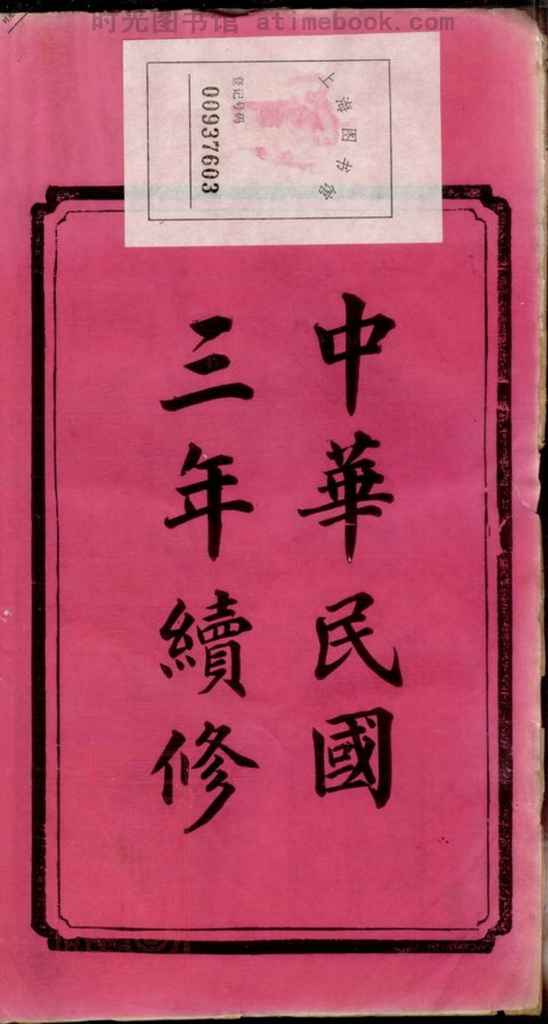 时光图书馆 atimebook.com
上海图书馆
登记号码
00937603
中華民國
三年續修